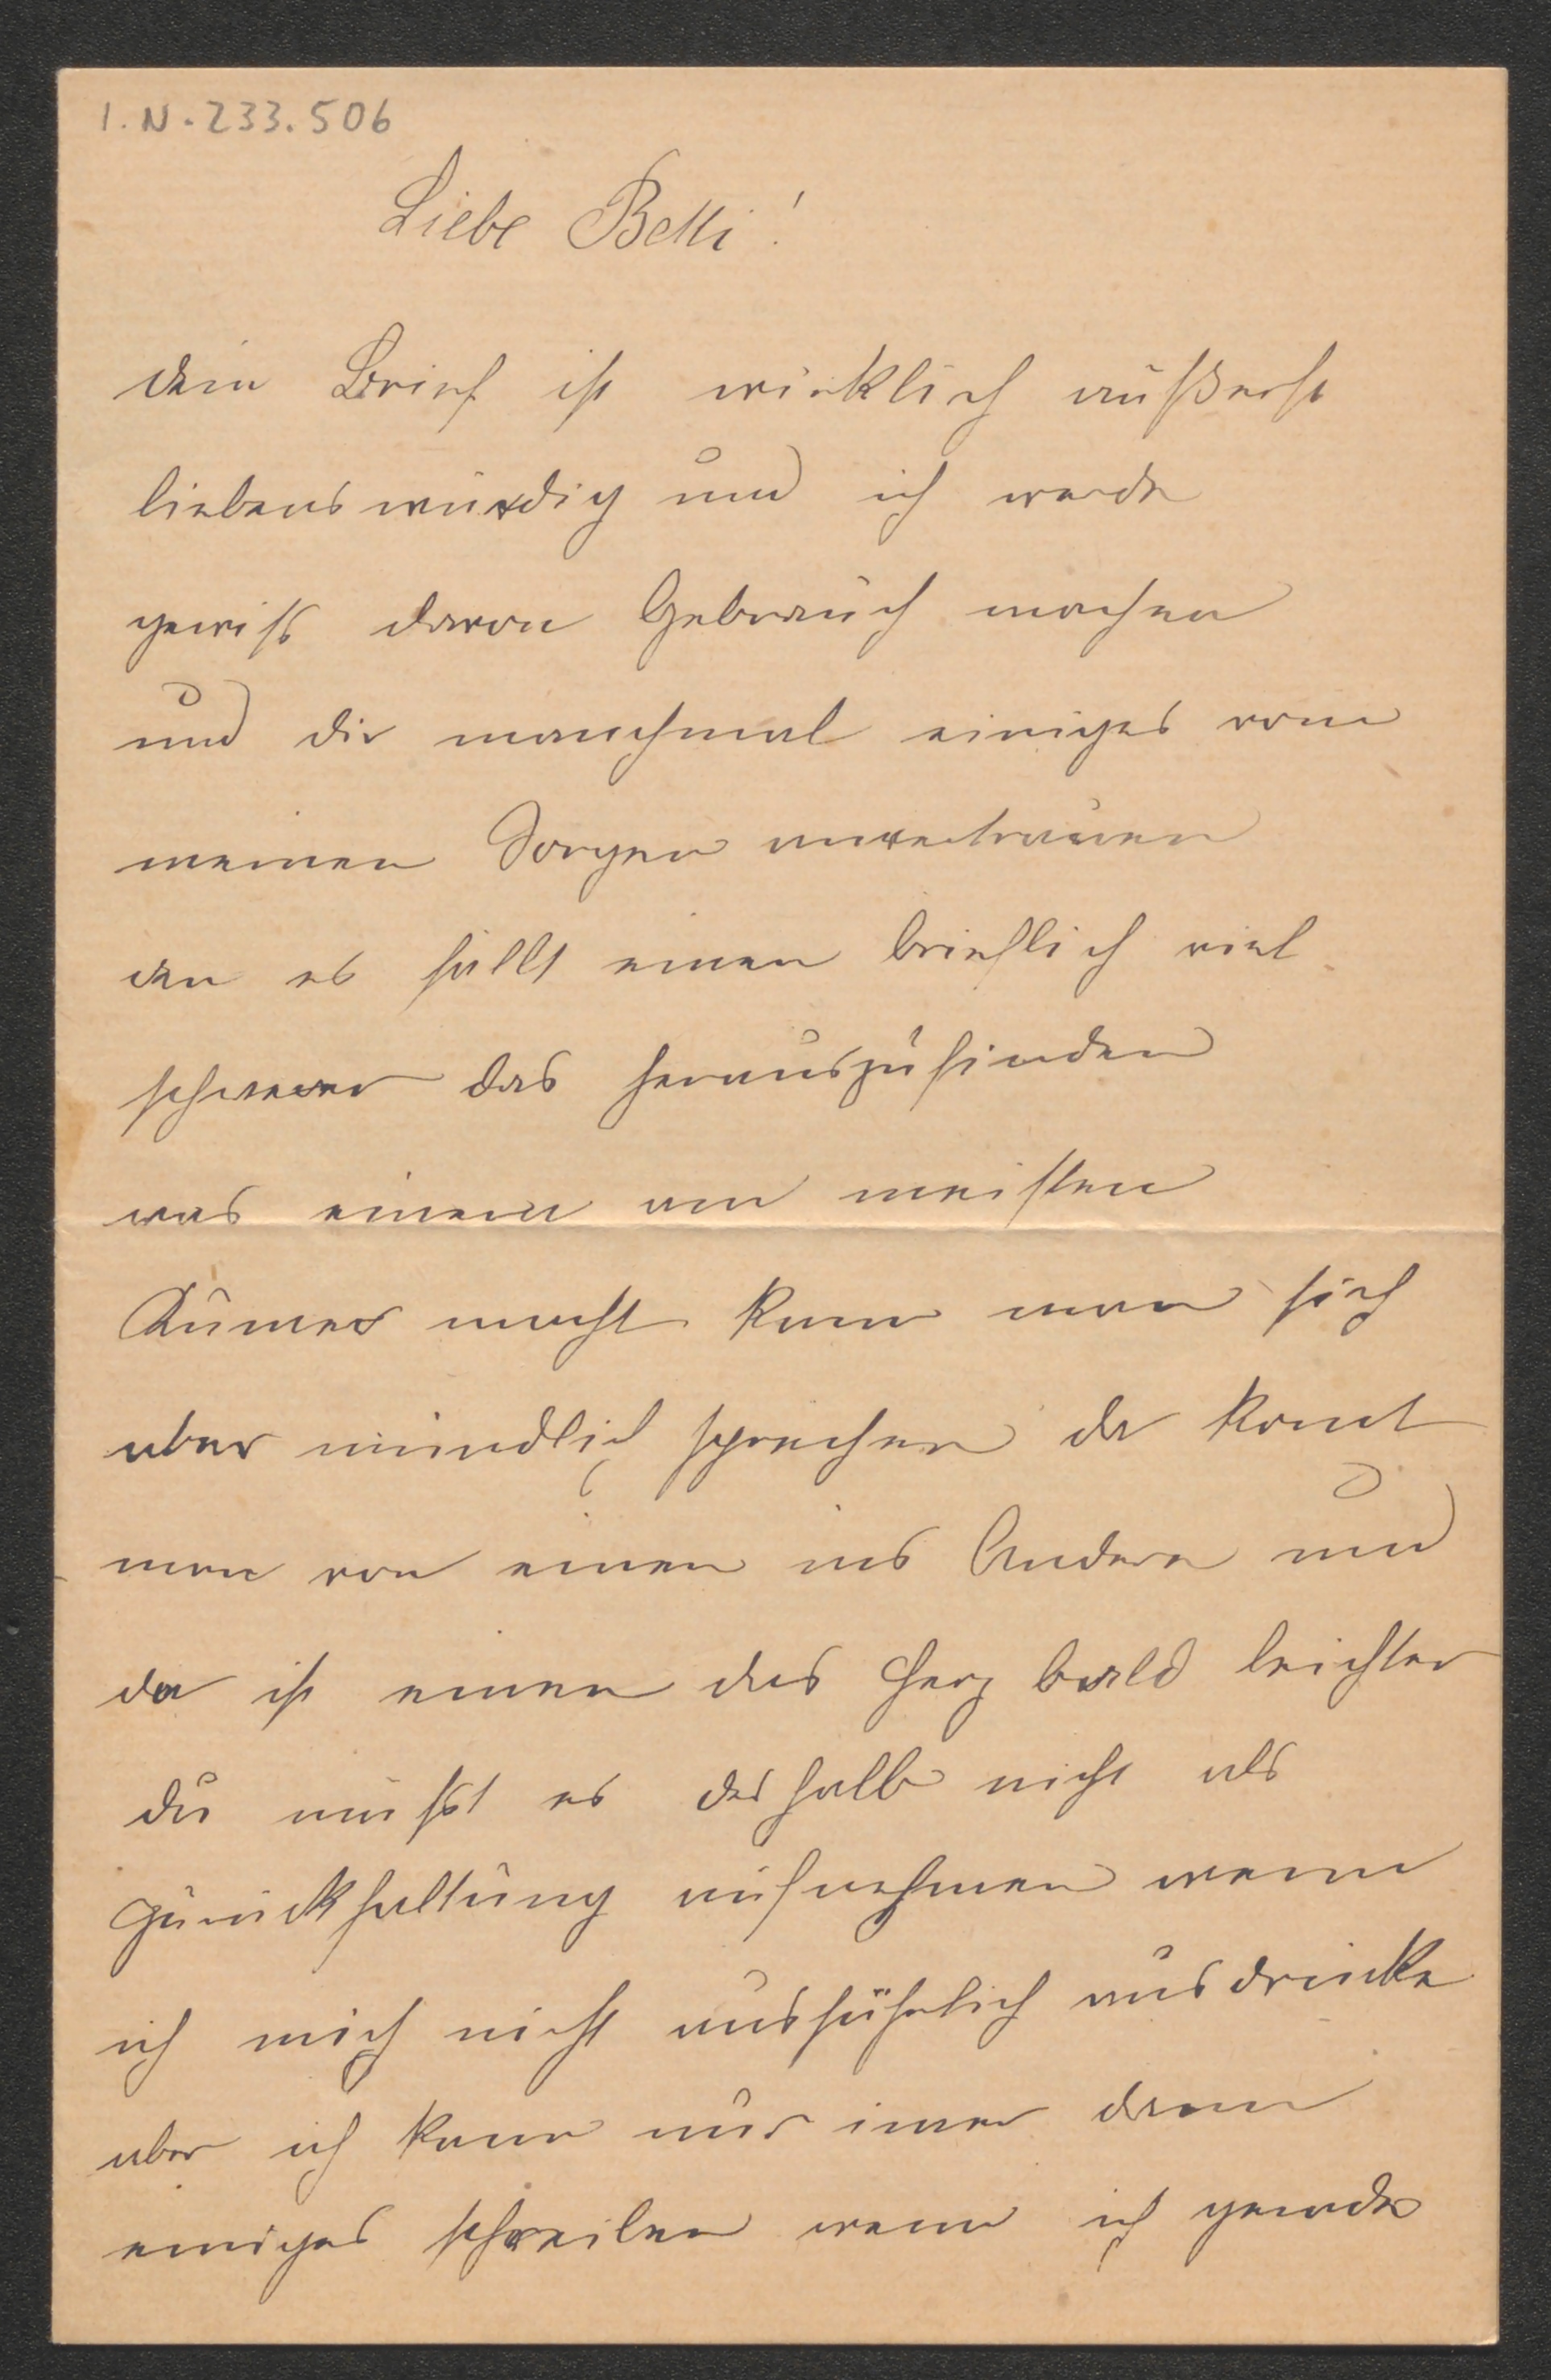 I.N. 233.506
Liebe Betti!
dein Brief ist wirklich äußerst
liebenswürdig und ich werde
gewiß davon Gebrauch machen
und dir manchmal einiges von
meinen Sorgen anvertrauen
den es fällt einen brieflich viel
schwerer das herauszufinden
was einem am meisten
Kumer macht kann man sich
aber mündlich sprechen da komt
man von einen ins Andere und
da ist einen das Herz bald leichter
du mußt es deshalb nicht als
Zurückhaltung aufnehmen wenn
ich mich nicht ausführlich ausdrücke
aber ich kann nur imer dann
einiges schreiben wenn ich gerade